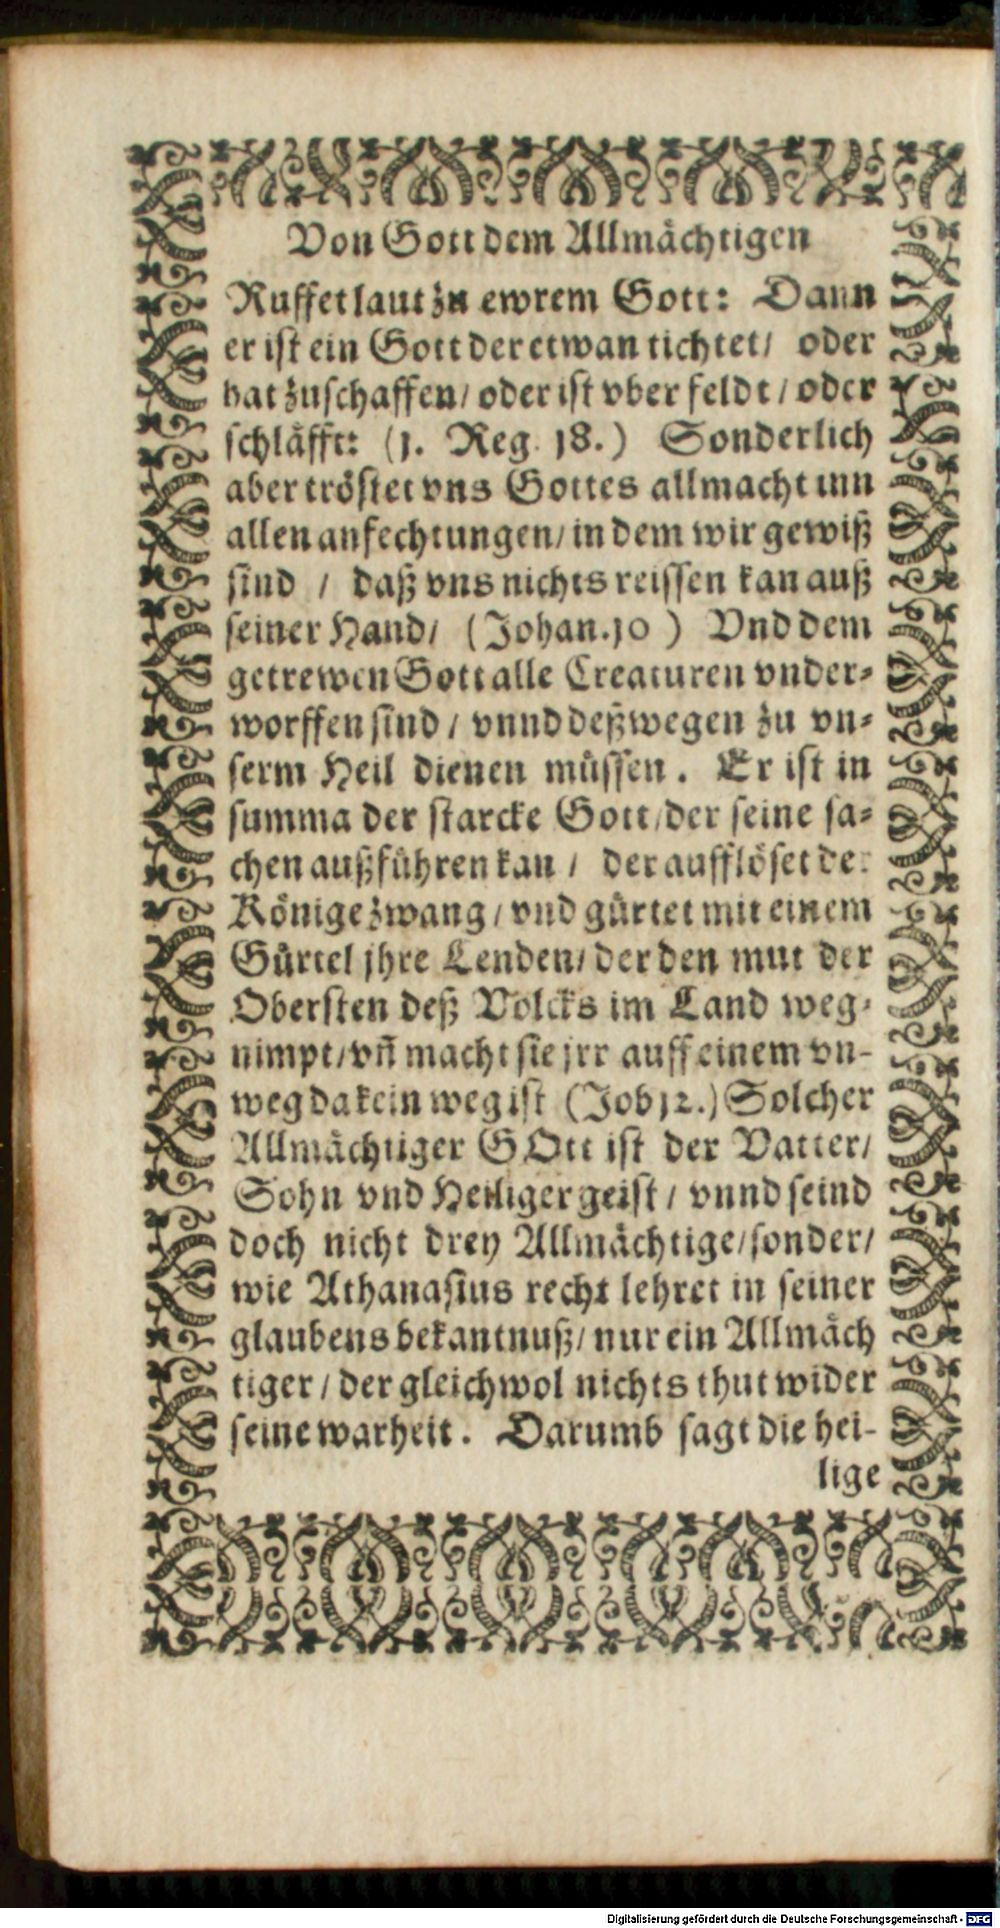 Von Gott dem Allmächtigen
Ruffet laut zu ewrem Gott: Dann
er ist ein Gott der etwan tichtet/ oder
hat zuschaffen/ oder ist vber feldt / oder
schläfft: (1. Reg. 18.) Sonderlich
aber tröstet vns Gottes allmacht inn
allen anfechtungen/ in dem wir gewiß
sind / daß vns nichts reissen kan auß
seiner Hand/ (Johan.10 ) Vnd dem
getrewen Gott alle Creaturen vnder-
worffen sind / vnnd deßwegen zu vn-
serm Heil dienen müssen. Er ist in
summa der starcke Gott/der seine sa-
chen außführen kan / der aufflöset der
Könige zwang / vnd gürtet mit einem
Gürtel jhre Lenden/ der den mut der
Obersten deß Volcks im Land weg-
nimpt/vñ macht sie jrr auff einem vn-
weg da kein weg ist (Job 12.) Solcher
Allmächtiger GOtt ist der Vatter/
Sohn vnd Heiliger geist / vnnd seind
doch nicht drey Allmächtige/sonder/
wie Athanasius recht lehret in seiner
glaubens bekantnuß/ nur ein Allmäch
tiger / der gleichwol nichts thut wider
seine warheit. Darumb sagt die hei-
lige
Digitalisierung gefördert durch die Deutsche Forschungsgemeinschaft - DFG